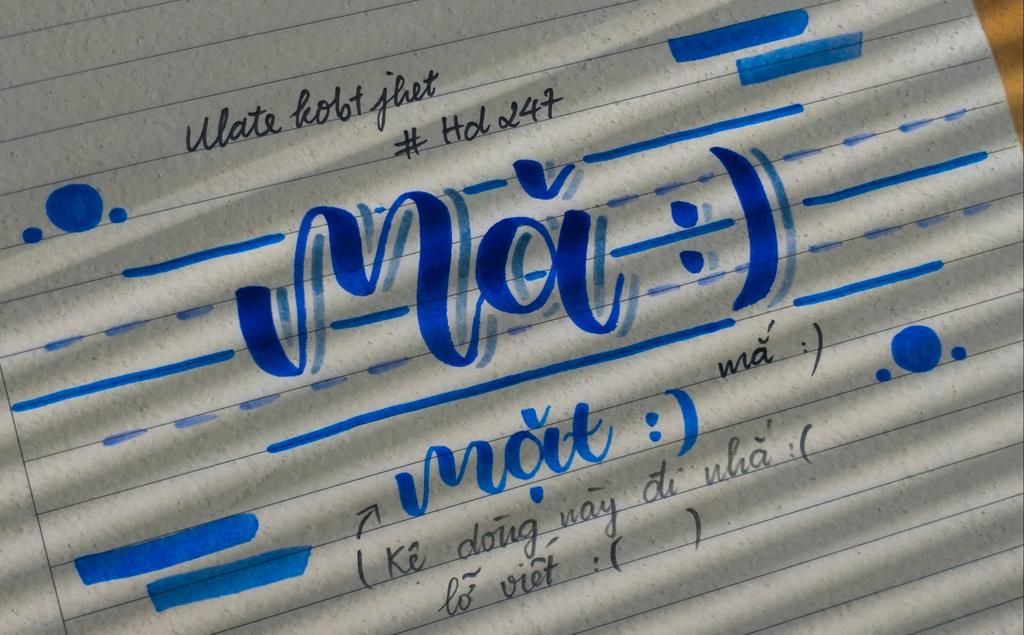 Ulate kobt jhet
# Hd 247
Mă :)
mắ :)
mặt :)
( Kê dòng này đi nhắ :(
lỡ viết :( )